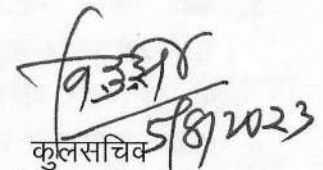 5/8/2023
कुलसचिव